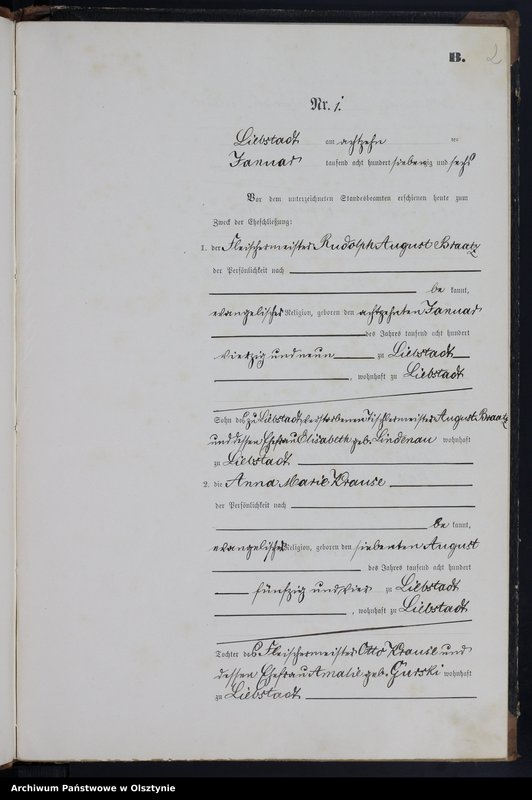 B. 2
Nr. 1.
Liebstadt am achtzehn ten
Januar tausend acht hundert siebenzig und sechs
Vor dem unterzeichneten Standesbeamten erschienen heute zum
Zweck der Eheschließung:
1. der Fleischermeister Rudolph August Braatz
der Persönlichkeit nach
be kannt,
evangelischer Religion, geboren den achtzehnten Januar
des Jahres tausend acht hundert
vierzig und neun zu Liebstadt
, wohnhaft zu Liebstadt
Sohn des zu Liebstadt verstorbenen Tischlermeister August Braatz
und dessen Ehefrau Elisabeth geb. Lindenau wohnhaft
zu Liebstadt.
2. die Anna Marie Krause
der Persönlichkeit nach
be kannt,
evangelischer Religion, geboren den siebenten August
des Jahres tausend acht hundert
fünfzig und vier zu Liebstadt
, wohnhaft zu Liebstadt
Tochter des Fleischermeister Otto Krause und
dessen Ehefrau Amalie geb. Gurski wohnhaft
zu Liebstadt
Archiwum Państwowe w Olsztynie